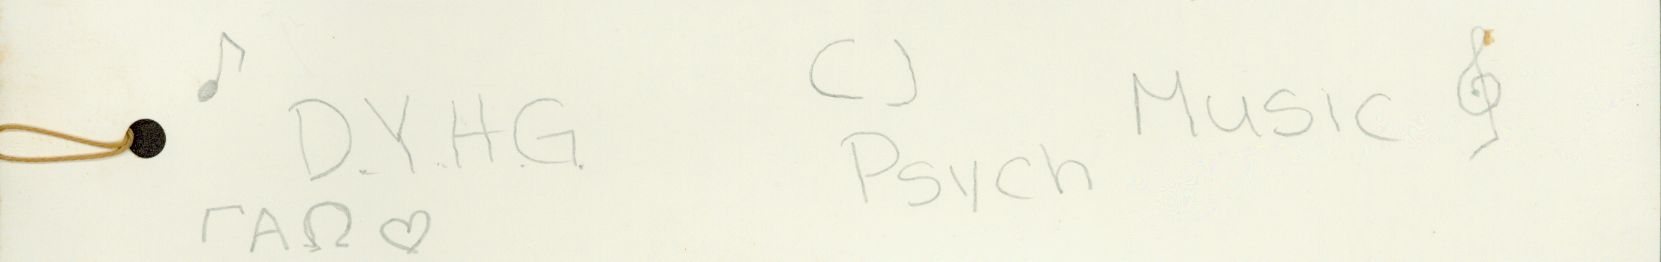 D.Y.H.G.
ΓΑΩ
CJ
Psych
Music